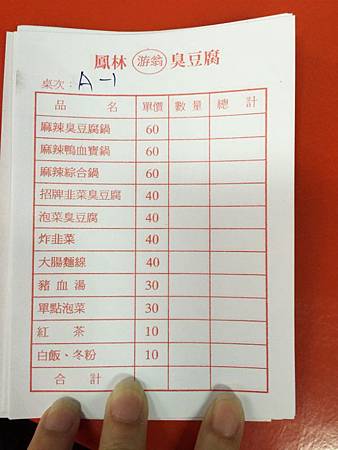 鳳林 游翁 臭豆腐
桌次：A-1
品 名 單價 數量 總 計
麻辣臭豆腐鍋 60
麻辣鴨血寶鍋 60
麻辣綜合鍋 60
招牌韭菜臭豆腐 40
泡菜臭豆腐 40
炸韭菜 40
大腸麵線 40
豬血湯 30
單點泡菜 30
紅 茶 10
白飯、冬粉 10
合 計